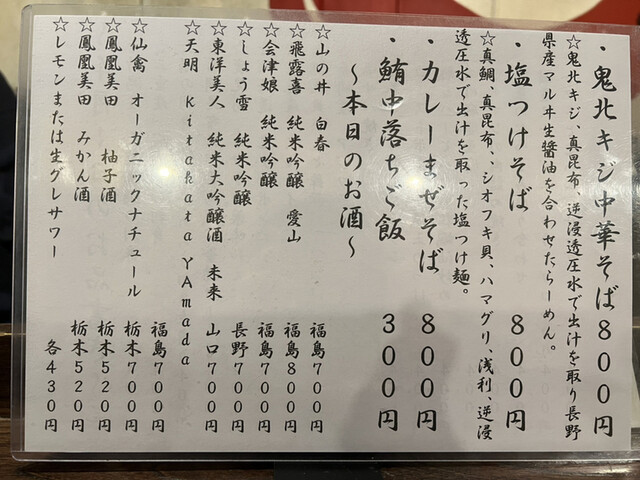 ・鬼北キジ中華そば８００円
☆鬼北キジ、真昆布、逆浸透圧水で出汁を取り長野
県産マルヰ生醤油を合わせたらーめん。
・塩つけそば　８００円
☆真鯛、真昆布、、シオフキ貝、ハマグリ、浅利、逆浸
透圧水で出汁を取った塩つけ麺。
・カレーまぜそば　８００円
・鮪中落ちご飯　３００円
～本日のお酒～
☆山の井　白春　福島７００円
☆飛露喜　純米吟醸　愛山　福島８００円
☆会津娘　純米吟醸　福島７００円
☆しょう雪　純米吟醸　長野７００円
☆東洋美人　純米大吟醸酒　未来　山口７００円
☆天明　Kitakata YAmada
福島７００円
☆仙禽　オーガニックナチュール　栃木７００円
☆鳳凰美田　柚子酒　栃木５２０円
☆鳳凰美田　みかん酒　栃木５２０円
☆レモンまたは生グレサワー　各４３０円